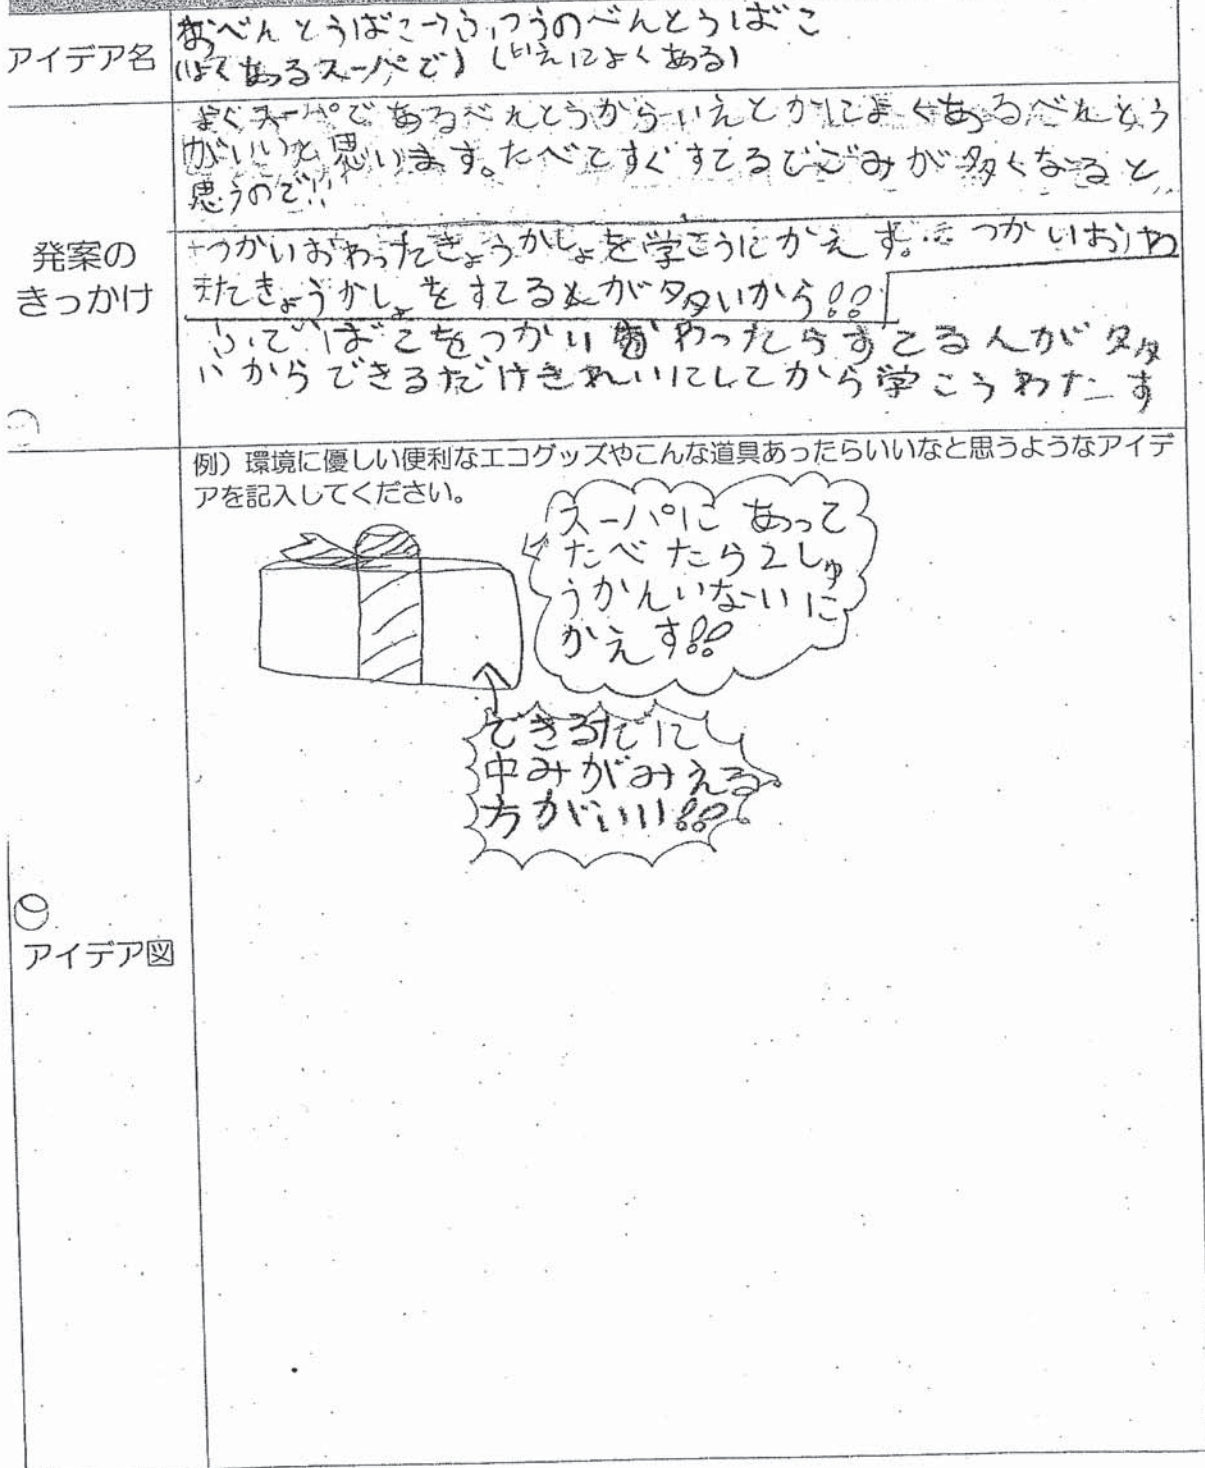 アイデア名
おべんとうばこ→ふつうのべんとうばこ
(よくあるスーパで) (いえによくある)
発案の
きっかけ
よくスーパであるべんとうからいえとかによくあるべんとう
がいいと思います。たべてすぐすてるでごみが多くなると
思うので!!
つかいおわったきょうかしょを学こうにかえす。 つかいおわ
たきょうかしょをすてる人が多いから!!
ふでばこをつかいおわったらすてる人が多
いからできるだけきれいにしてから学こうわたす
アイデア図
例)環境に優しい便利なエコグッズやこんな道具あったらいいなと思うようなアイデ
アを記入してください。
スーパにあって
たべたら2しゅ
うかんいないに
かえす!!
できるだに
中みがみえる
方がいい!!